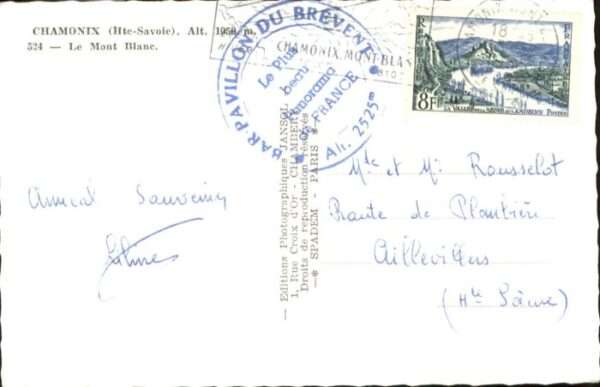 CHAMONIX (Hte-Savoie). Alt. 1050 m.
524 — Le Mont Blanc.
BAR-PAVILLON DU BRÉVENT
Le Plus
beau
Panorama
de FRANCE
Alt. 2525m
CHAMONIX MONT-BLAN
18
8F
Amical Souvenir
— Editions Photographiques JANSOL
1, Rue Croix d'Or - CHAMBERY
Droits de reproduction réservés
—* SPADEM - PARIS *—
Mde et Mr Rousselot
Route de Plombière
Aillevillers
(Hte Saône)